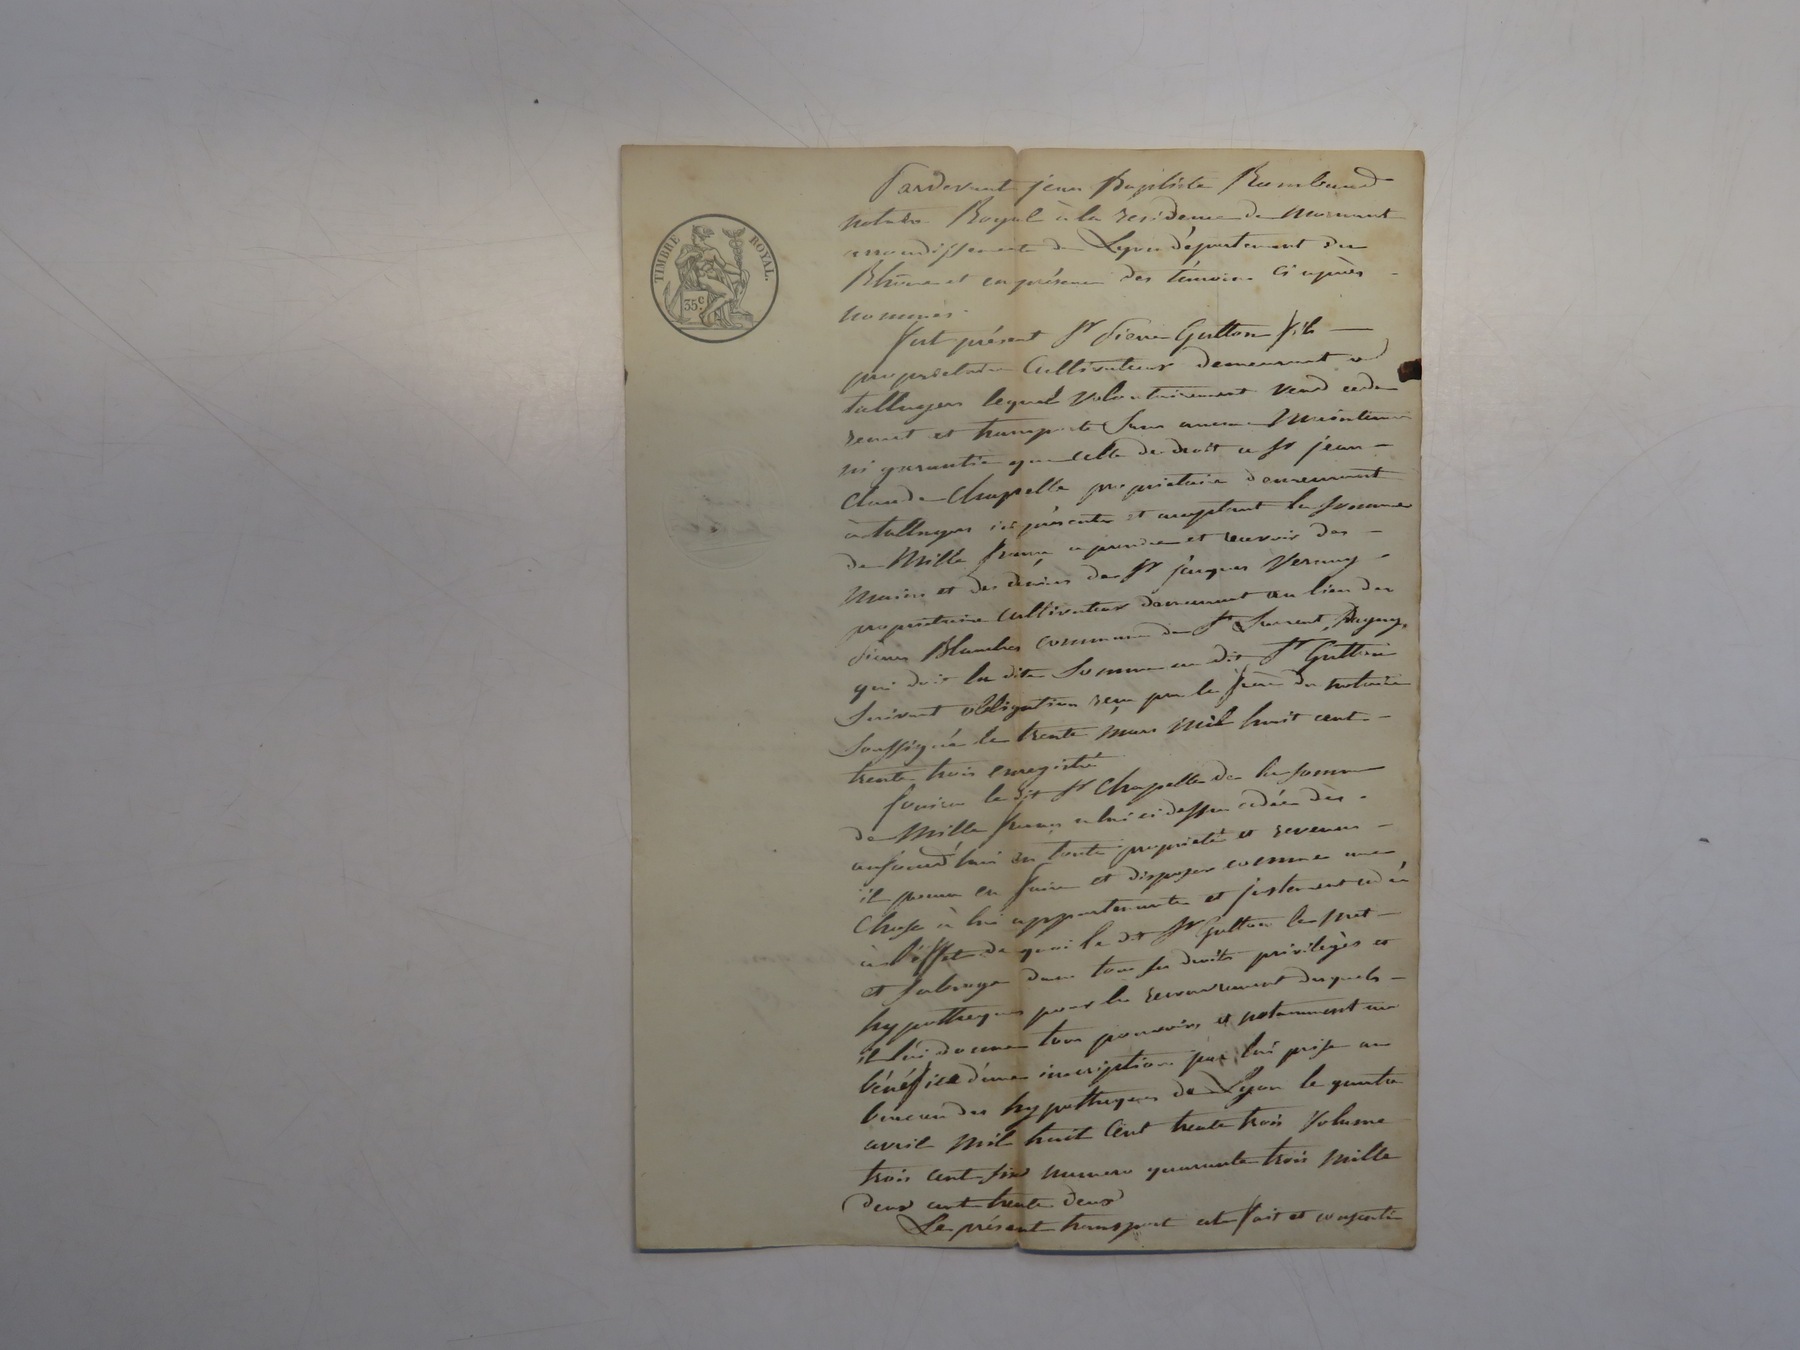 TIMBRE ROYAL.
35 c.
Pardevant jean Baptiste Rambaud
notaire Royal à la résidence de Mornant
arrondissement de Lyon département du
Rhône et en présence des témoins ci après
nommés.
fut présent Sr Pierre Gutton fils
propriétaire Cultivateur demeurant à
talluyers lequel volontairement vend cède
remet et transporte sans aucune Maintenue
ni garantie que celle de droit a Sr jean
Claude Chapelle propriétaire demeurant
à talluyers ici présent et acceptant la somme
de Mille francs a prendre et recevoir des
mains et des deniers de Sr jacques Vernay
propriétaire cultivateur demeurant au lieu des
Pierres Blanches commune de St Laurent
qui doit la dite somme au dit Sr Gutton
suivant obligation reçu par le père du notaire
soussigné le trente mars mil huit cent
trente trois enregistré
jouira le dit Sr Chapelle de la somme
de Mille francs a lui ci dessus cédée dès
aujourd'hui en toute propriété et revenus
il pourra en faire et disposer comme une
Chose à lui appartenante et justement cédée
à l'éffet de quoi le dit Sr Gutton le met
et subroge dans tous ses droits privilèges et
hypothèques pour le recouvrement desquels
il lui donne tous pouvoirs et notamment au
bénéfice d'une inscription par lui prise au
bureau des hypothèques de Lyon le quatre
avril mil huit Cent trente trois Volume
trois cent six numero quarante trois mille
deux cent trente deux
Le présent transport est fait et consenti